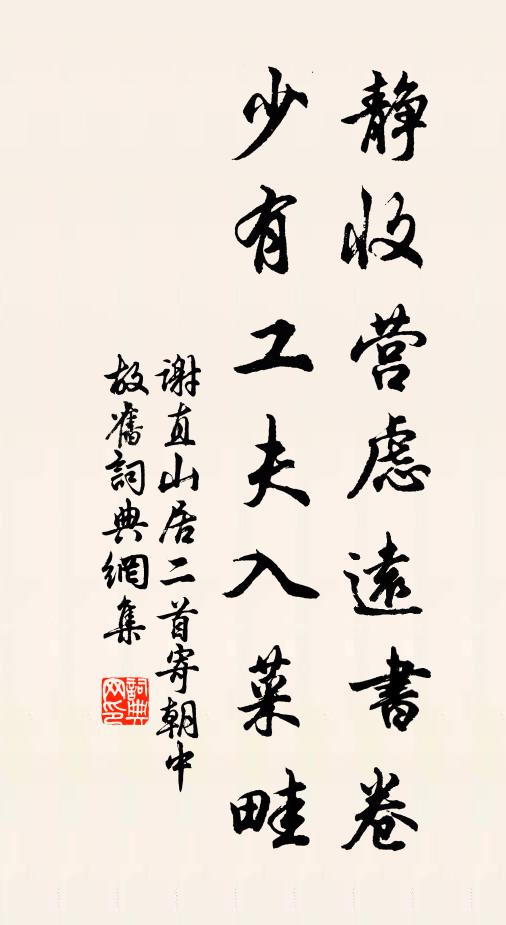 静收营慮遠書卷
少有工夫入菜畦
谢直山居二首寄朝中
故舊詞典網集
詞典网印